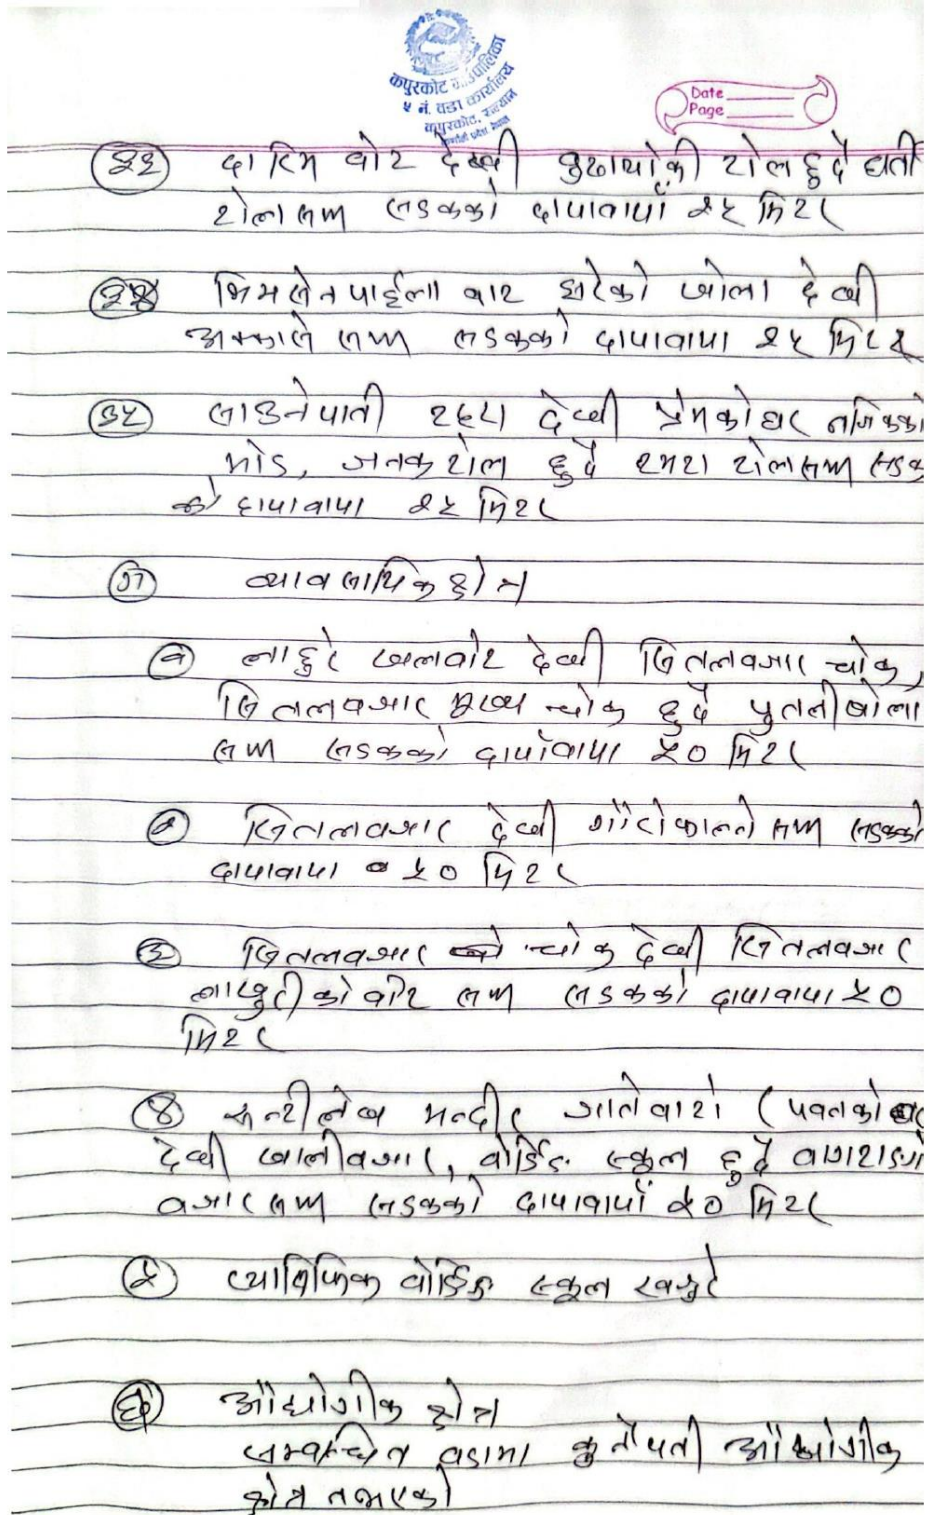 कपुरकोट गाउँपालिका
५ नं. वडा कार्यालय
कपुरकोट, सल्यान
कर्णाली प्रदेश नेपाल
Date
Page
३३ दारिम वोट देखी टोल हुदै घर्ती
टोला सम्म सडकको दायावायाँ २५ मिटर
३४ भिमसेनपाईला वाट झरेको खोला देखी
सम्म सडकको दायावाया २५ मिटर
३५ साउनेपानी देखी प्रेमको घर नजिकको
मोड, जनक टोल हुदै टोलसम्म सडक
को दायावाया २५ मिटर
ग व्यावसायिक क्षेत्र
१ लाहुरे खलवोट देखी शितलवजार चोक,
शितलवजार मुख्य चोक हुदै पुतलीखोला
सम्म सडकको दायाँवाया ५० मिटर
२ शितलवजार देखी सम्म सडकको
दायावाया ५० मिटर
३ शितलवजार चोक देखी शितलवजार
को वोट सम्म सडकको दायावाया ५०
मिटर
४ मन्दीर (पवनको घर
देखी खालीवजार, वोर्डिङ स्कूल हुदै
वजार सम्म सडकको दायावायाँ ५० मिटर
५ वोर्डिङ स्कूल
औद्योगीक क्षेत्र
सम्वन्धित वडामा कुनैपनी औद्योगीक
क्षेत्र नभएको